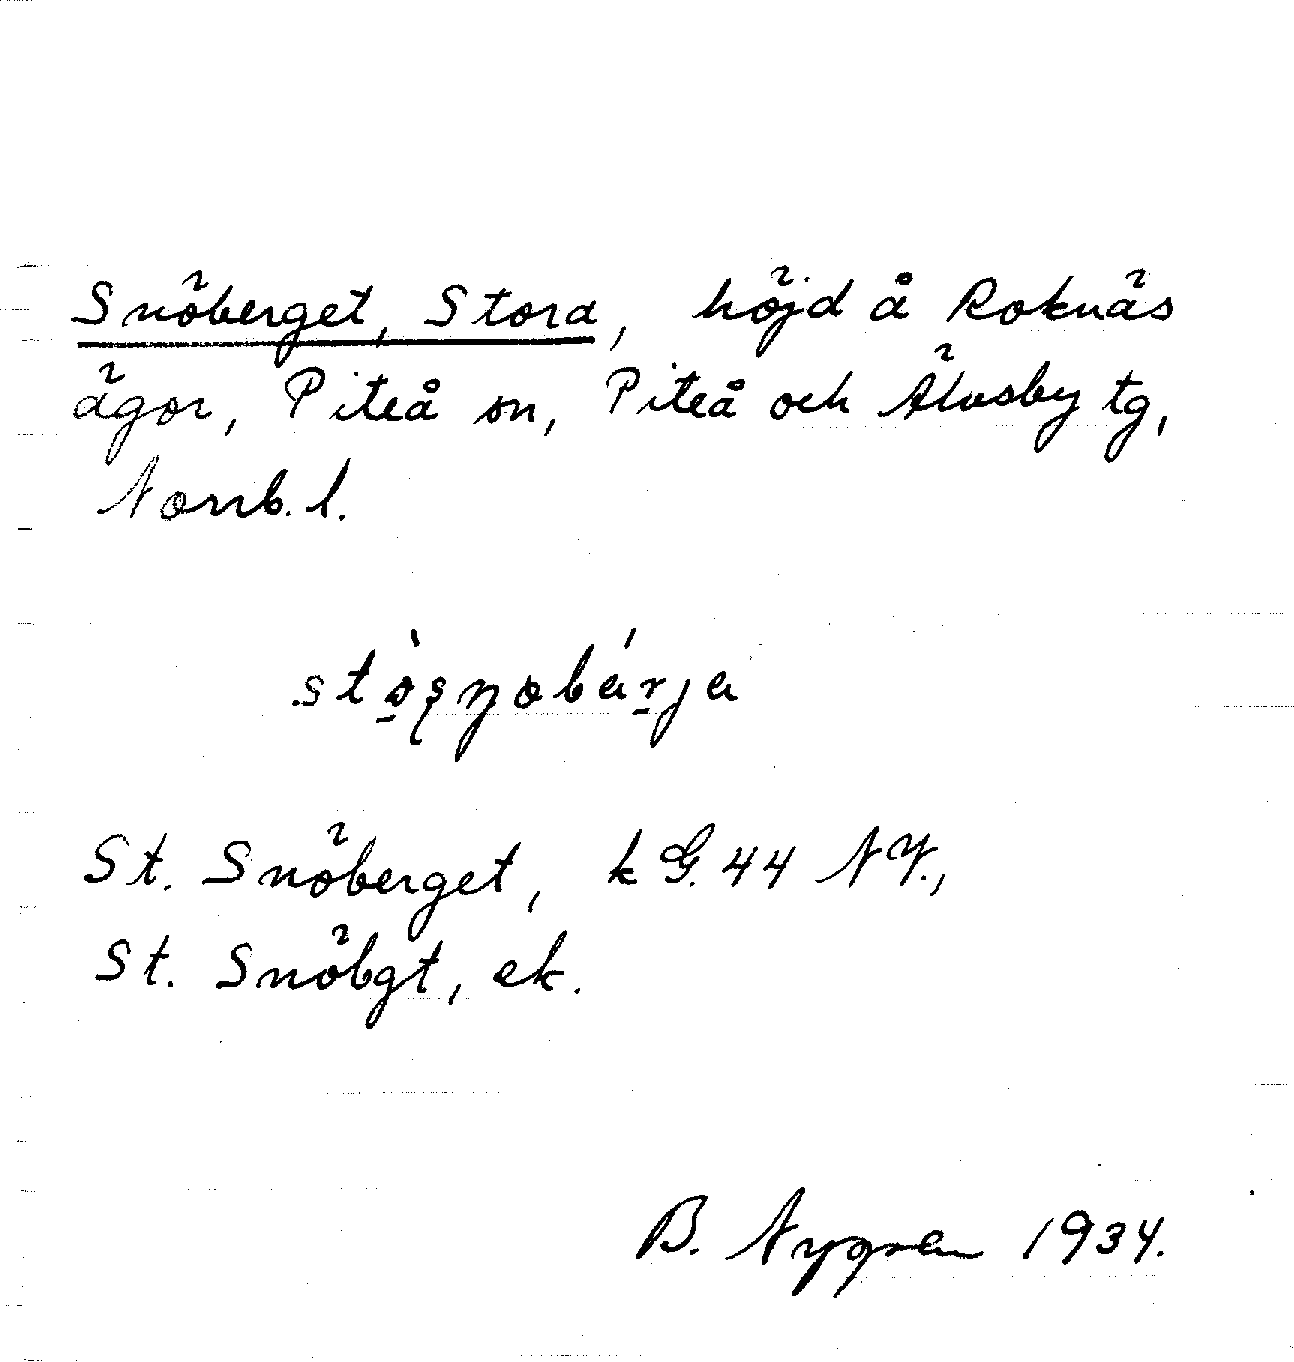 Snöberget, Stora, höjd å Roknäs
ägor, Piteå sn, Piteå och Älvsby tg,
Norrb. l.
St. Snöberget, k G. 44 NV.,
St. Snöbgt, ek.
B. Nygren 1934.